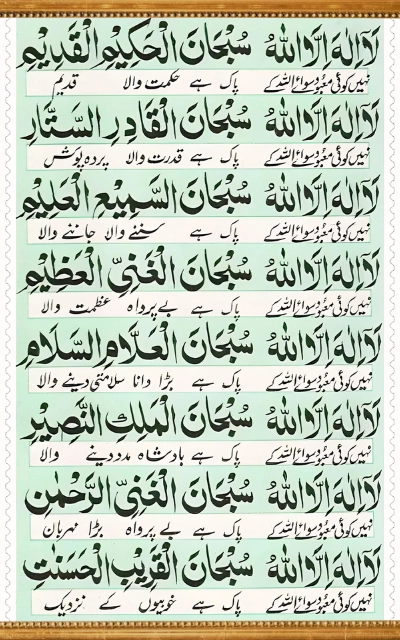 لَآ اِلٰهَ اِلَّا اللهُ سُبْحَانَ الْحَكِيْمِ الْقَدِيْمِ
نہیں کوئی معبود سوائے اللہ کے پاک ہے حکمت والا قدیم
لَآ اِلٰهَ اِلَّا اللهُ سُبْحَانَ الْقَادِرِ السَّتَّارِ
نہیں کوئی معبود سوائے اللہ کے پاک ہے قدرت والا پردہ پوش
لَآ اِلٰهَ اِلَّا اللهُ سُبْحَانَ السَّمِيْعِ الْعَلِيْمِ
نہیں کوئی معبود سوائے اللہ کے پاک ہے سننے والا جاننے والا
لَآ اِلٰهَ اِلَّا اللهُ سُبْحَانَ الْغَنِيِّ الْعَظِيْمِ
نہیں کوئی معبود سوائے اللہ کے پاک ہے بے پرواہ عظمت والا
لَآ اِلٰهَ اِلَّا اللهُ سُبْحَانَ الْعَلَّامِ السَّلَامِ
نہیں کوئی معبود سوائے اللہ کے پاک ہے بڑا دانا سلامتی دینے والا
لَآ اِلٰهَ اِلَّا اللهُ سُبْحَانَ الْمَلِكِ النَّصِيْرِ
نہیں کوئی معبود سوائے اللہ کے پاک ہے بادشاہ مدد دینے والا
لَآ اِلٰهَ اِلَّا اللهُ سُبْحَانَ الْغَنِيِّ الرَّحْمٰنِ
نہیں کوئی معبود سوائے اللہ کے پاک ہے بے پرواہ بڑا مہربان
لَآ اِلٰهَ اِلَّا اللهُ سُبْحَانَ الْقَرِيْبِ الْحَسَنٰتِ
نہیں کوئی معبود سوائے اللہ کے پاک ہے خوبیوں کے نزدیک